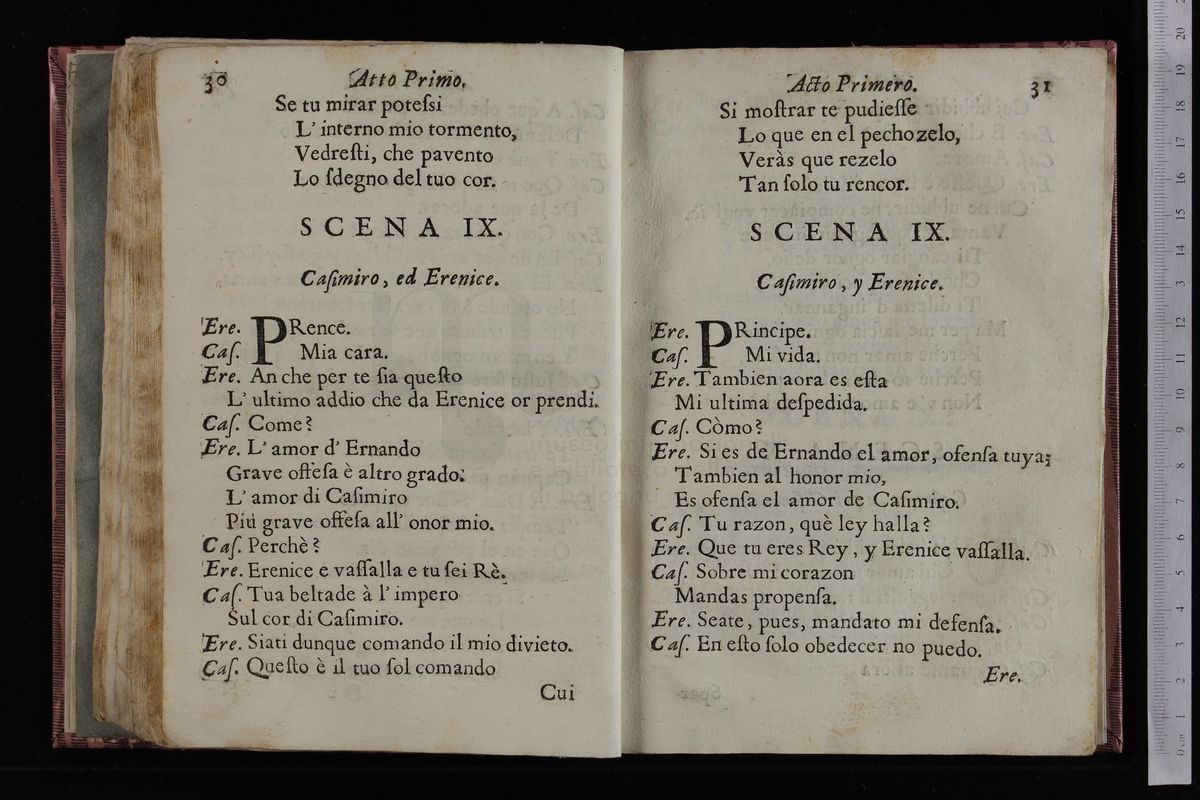 30 Atto Primo.
Se tu mirar poteſsi
L' interno mio tormento,
Vedreſti, che pavento
Lo ſdegno del tuo cor.
SCENA IX.
Caſimiro, ed Erenice.
Ere. PRence.
Caſ. Mia cara.
Ere. An che per te ſia queſto
L' ultimo addio che da Erenice or prendi.
Caſ. Come?
Ere. L' amor d' Ernando
Grave offeſa è altro grado:
L' amor di Caſimiro
Più grave offeſa all' onor mio.
Caſ. Perchè?
Ere. Erenice e vaſſalla e tu ſei Rè.
Caſ. Tua beltade à l' impero
Sul cor di Caſimiro.
Ere. Siati dunque comando il mio divieto.
Caſ. Queſto è il tuo ſol comando
Cui
Acto Primero. 31
Si moſtrar te pudieſſe
Lo que en el pecho zelo,
Veràs que rezelo
Tan ſolo tu rencor.
SCENA IX.
Caſimiro, y Erenice.
Ere. PRincipe.
Caſ. Mi vida.
Ere. Tambien aora es eſta
Mi ultima deſpedida.
Caſ. Còmo?
Ere. Si es de Ernando el amor, ofenſa tuya;
Tambien al honor mio,
Es ofenſa el amor de Caſimiro.
Caſ. Tu razon, què ley halla?
Ere. Que tu eres Rey, y Erenice vaſſalla.
Caſ. Sobre mi corazon
Mandas propenſa.
Ere. Seate, pues, mandato mi defenſa.
Caſ. En eſto ſolo obedecer no puedo.
Ere.